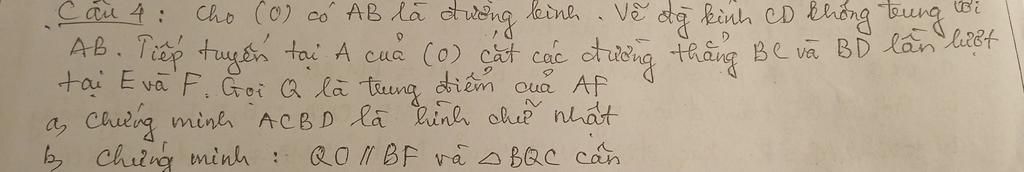 Câu 4 : Cho (O) có AB là đường kính . Vẽ đg kính CD không trung với
AB . Tiếp tuyến tại A của (O) cắt các đường thẳng BC và BD lần lượt
tại E và F . Gọi Q là trung điểm của AF
a, Chứng minh ACBD là hình chữ nhất
b, Chứng minh : QO // BF và △ BQC cần